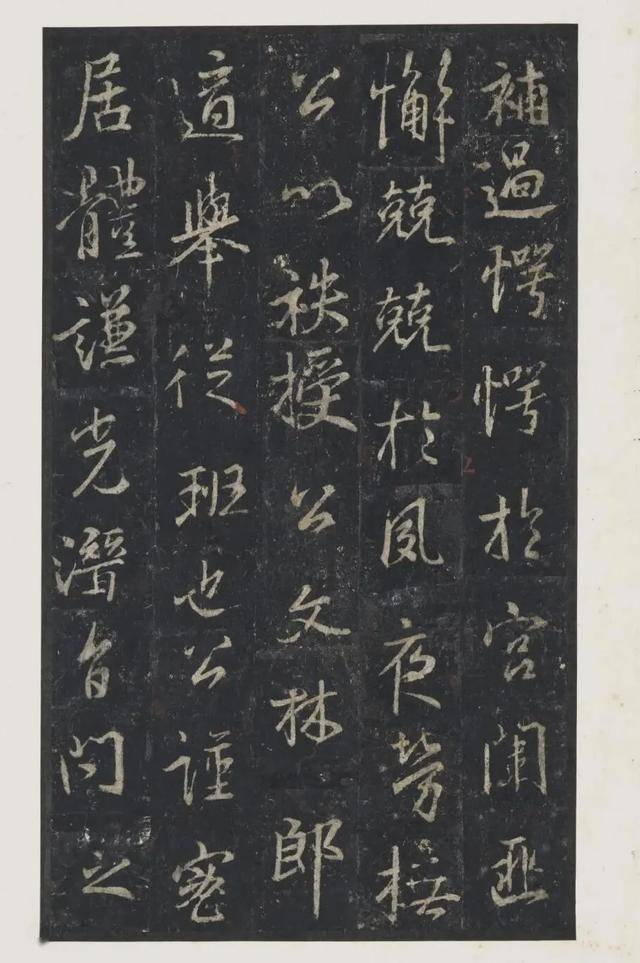 補過愕愕於宮闈匪
懈兢兢於夙夜勞撫
公以秩授公文林郎
道舉從班也公謹密
居體謙光潛旨問之